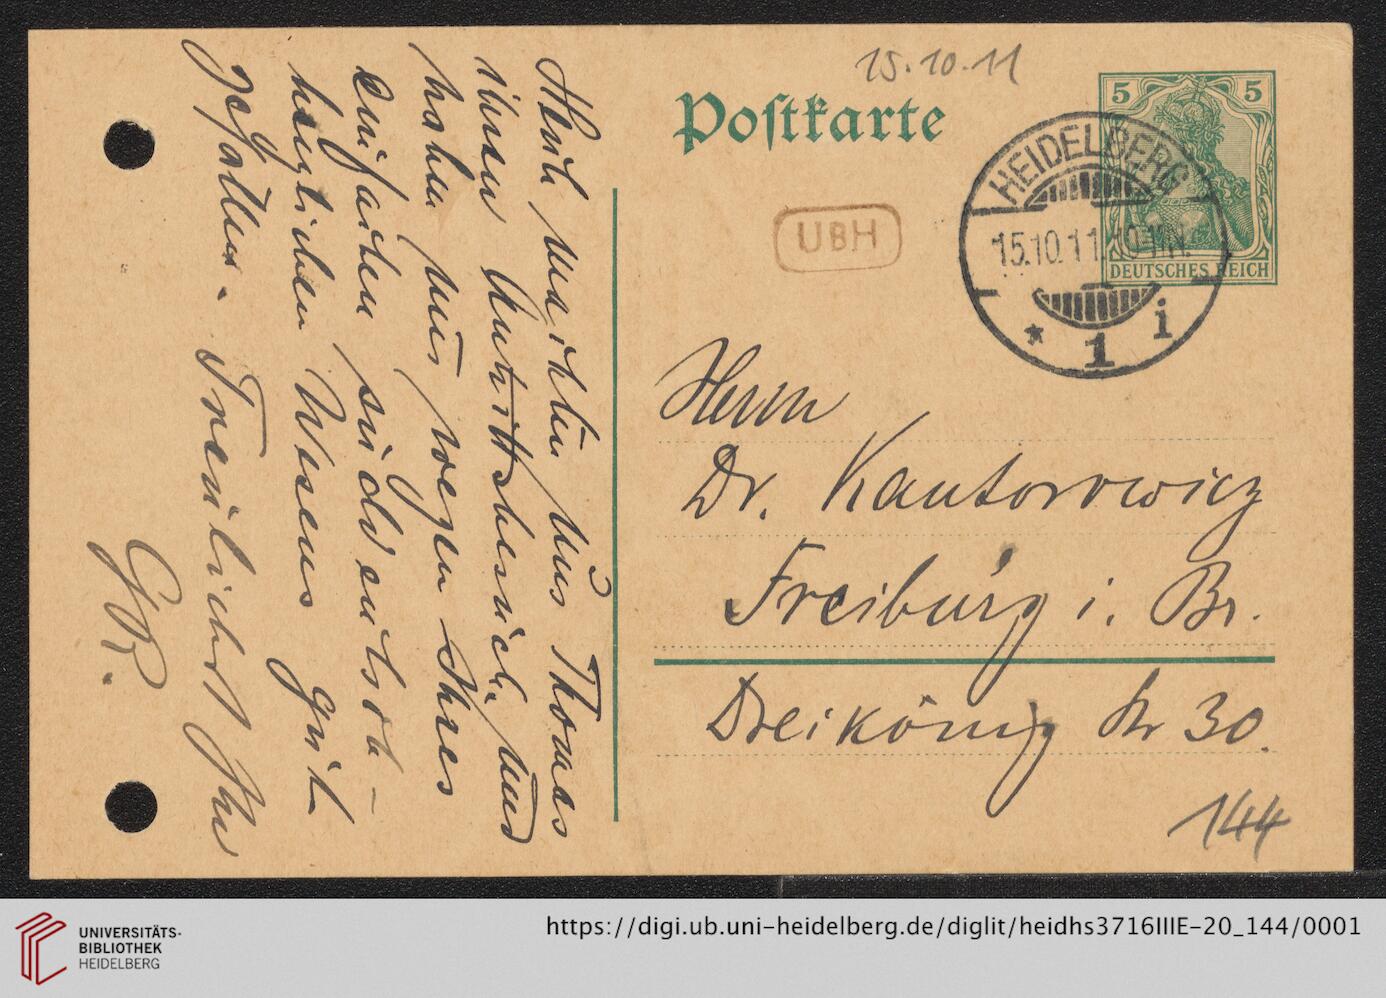 15.10.11
Postkarte
5 5
DEUTSCHES REICH
HEIDELBERG
15.10.11. 10-11N.
* 1 i
UBH
Herrn
Dr. Kantorowicz
Freiburg i. Br.
Dreikönig Str 30.
144
Heut machten uns Thomas
ihren Antrittsbesuch, und
haben uns wegen Ihres
einfachen süddeutsch-
herzlichen Wesens gut
gefallen. Freundlichst Ihr
GR.
UNIVERSITÄTS-
BIBLIOTHEK
HEIDELBERG
https://digi.ub.uni-heidelberg.de/diglit/heidhs3716IIIE-20_144/0001